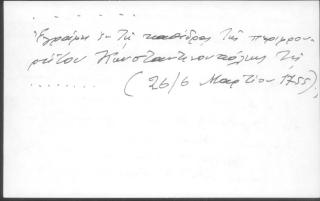 . . . . . . .
Ἐγράφη ἐν τῇ καθέδρᾳ τῆς περιφρου-
ρήτου Κωνσταντινουπόλεως τῇ
. . . . . . . (26/6 Μαρτίου 1755),